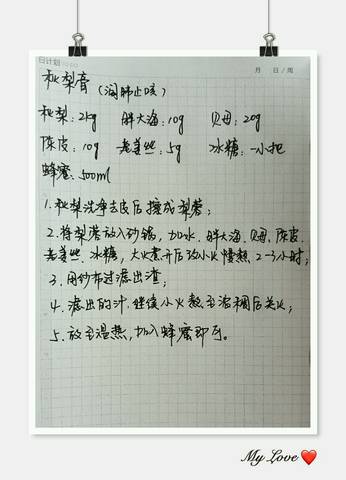 日计划
月 日/周
秋梨膏（润肺止咳）
秋梨：2kg 胖大海：10g 贝母：20g
陈皮：10g 老姜丝：5g 冰糖：一小把
蜂蜜：500ml
1. 秋梨洗净去皮后擦成梨蓉；
2. 将梨蓉放入砂锅，加水、胖大海、贝母、陈皮、
老姜丝、冰糖，大火煮开后改小火慢熬2-3小时；
3. 用纱布过滤出渣；
4. 滤出的汁，继续小火熬至浓稠后关火；
5. 放至温热，加入蜂蜜即可。
My Love